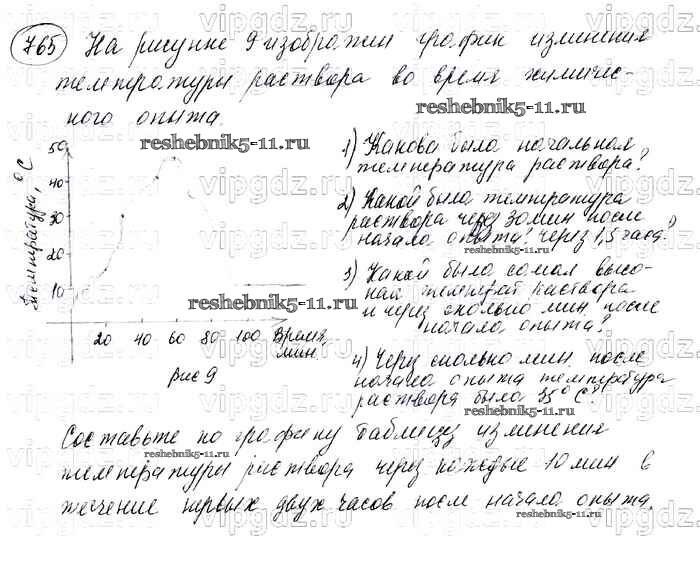 765 На рисунке 9 изображен график изменения
температуры раствора во время химичес-
кого опыта.
reshebnik5-11.ru
reshebnik5-11.ru
50
40
30
20
10
Температура, °C
20 40 60 80 100 Время,
мин.
Рис 9
1) Какова была начальная
температура раствора?
2) Какой была температура
раствора через 30 мин после
начала опыта? через 1,5 часа?
reshebnik5-11.ru
3) Какой была самая высо-
кая температ раствора
и через сколько мин. после
начала опыта?
reshebnik5-11.ru
4) Через сколько мин после
начала опыта температура
раствора была 35° C?
reshebnik5-11.ru
Составьте по графику таблицу изменения
reshebnik5-11.ru
температуры раствора через каждые 10 мин в
течение первых двух часов после начала опыта.
reshebnik5-11.ru
vipgdz.ru